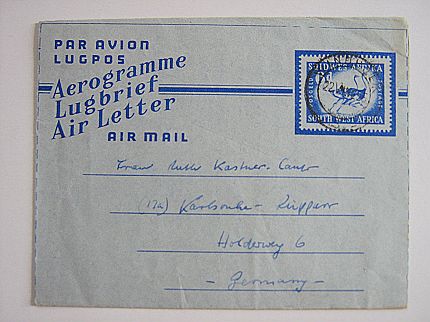 PAR AVION
LUGPOS
Aerogramme
Lugbrief
Air Letter
AIR MAIL
SUIDWES-AFRIKA
POSGELD
POSTAGE
SOUTH WEST AFRICA
Frau Ruth Kastner-
(17a) Karlsruhe - Rüppurr
Holderweg 6
- Germany -